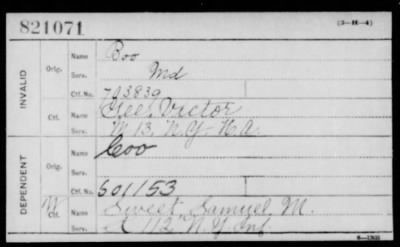 821071
(3-H-4)
INVALID
Orig.
Name Boo
Serv. Md
Ctf. No. 703839
Ctf.
Name Gee, Victor
Serv. M 13, N.Y. H.A.
DEPENDENT
Orig.
Name Coo
Serv.
Ctf. No. 501153
W
Ctf.
Name Sweet, Samuel M.
Serv. 112" N.Y. Inf.